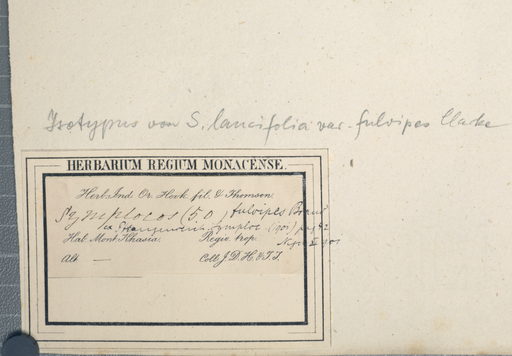 Isotypus von S. lancifolia var. fulvipes Clarke
HERBARIUM REGIUM MONACENSE.
Herb. Ind. Or. Hook. fil. & Thomson.
Symplocos (50) fulvipes Brand
Symploc. (901) pag 42
Hab. Mont. Khasia. Regio trop.
Alt. — Coll. J. D. H. & T. T.